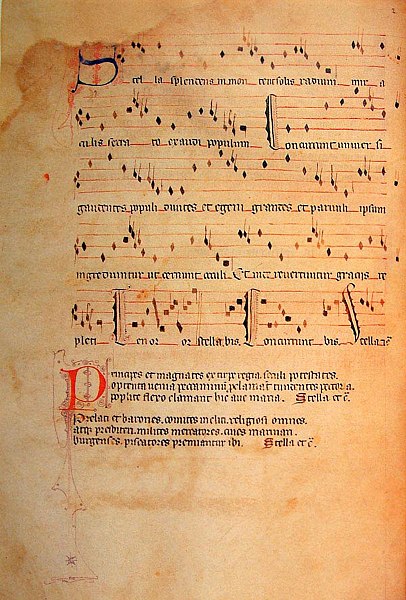 2
Stel la splendens in mon te ut solis radium mir a
culis serra to exaudi populum Concurrunt univer si
gaudentes populi divites et egeni grandes et parvuli ipsum
ingrediuntur ut cernunt occuli Et inde revertuntur gracijs re
pleti Tenor or stella bis. Concurrunt bis Stella et c̄
Principes et magnates ex stirpe regia. seculi potestates.
optenta venia peccaminū. pclamāt tundentes pectora.
poplite flexo clamant hic ave maria. Stella et c̄.
Prelati et barones. comites incliti. religiosi omnes.
atqȝ presbiteri. milites mercatores. cives marinari.
burgenses. piscatores premiantur ibi. Stella et c̄.